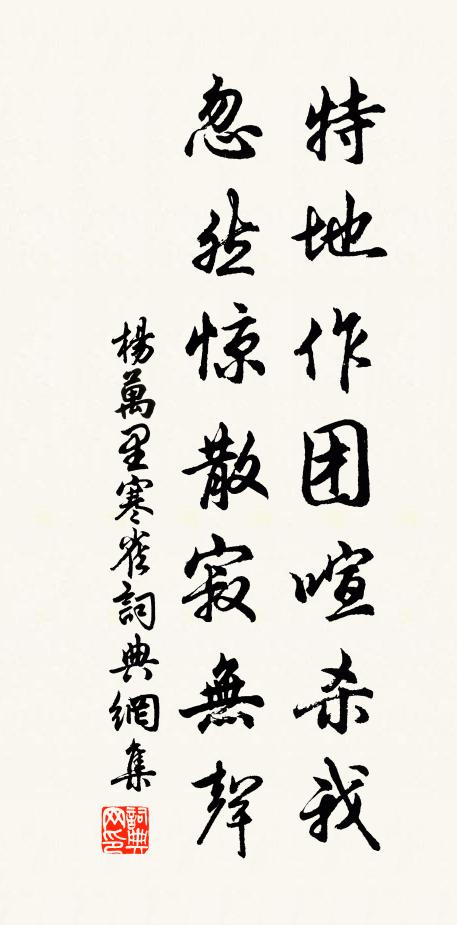 特地作团喧杀我
忽然惊散寂無聲
楊萬里寒雀詞典網集
詞典
网印